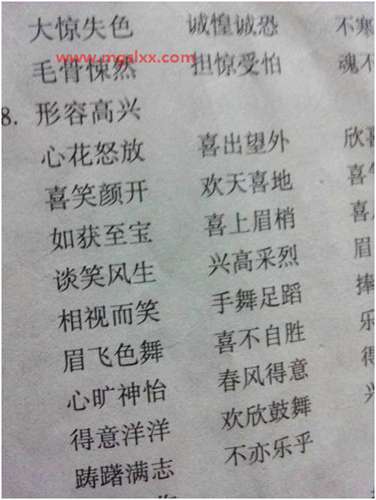 大惊失色 诚惶诚恐 不寒
毛骨悚然 担惊受怕 魂不
www.mgslxx.com
8. 形容高兴
心花怒放 喜出望外 欣喜
喜笑颜开 欢天喜地 喜气
如获至宝 喜上眉梢 喜
谈笑风生 兴高采烈 眉
相视而笑 手舞足蹈 捧
眉飞色舞 喜不自胜 乐
心旷神怡 春风得意 得
得意洋洋 欢欣鼓舞 兴
踌躇满志 不亦乐乎